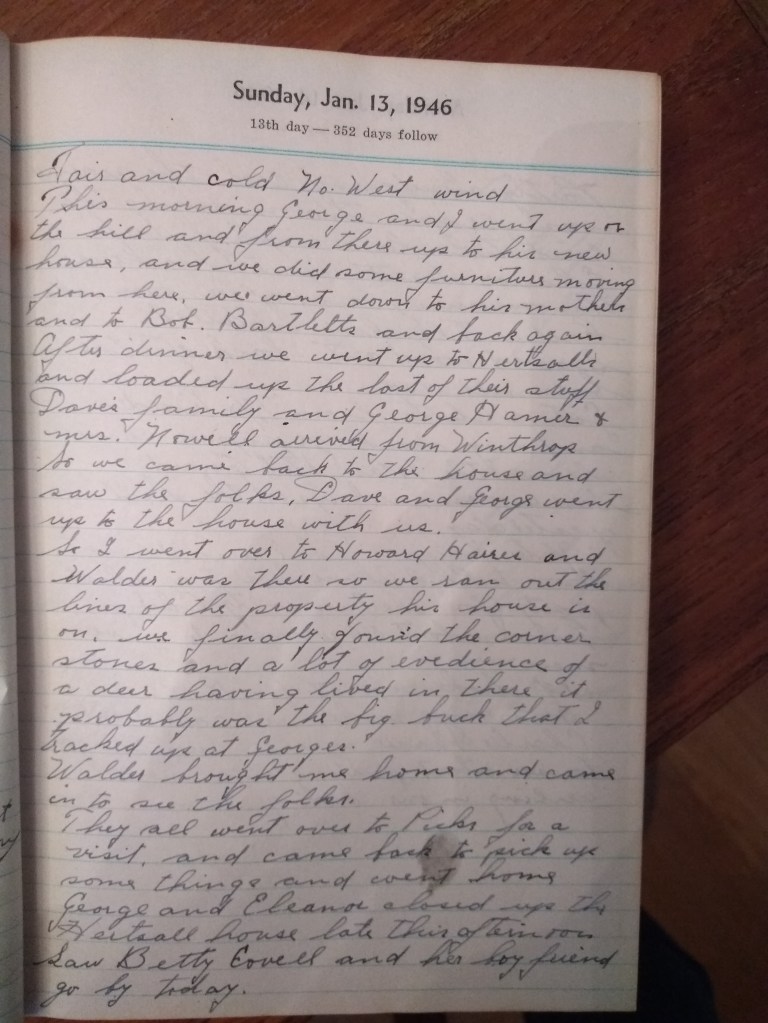 Sunday, Jan. 13, 1946
13th day — 352 days follow
Fair and cold No. West wind
This morning George and I went up on
the hill and from there up to his new
house, and we did some furniture moving
from here, we went down to his mothers
and to Bob. Bartletts and back again
After dinner we went up to Hertsalls
and loaded up the last of their stuff
Daves family and George Hamer &
mrs. Nowell arrived from Winthrop
So we came back to the house and
saw the folks, Dave and George went
up to the house with us.
So I went over to Howard and
Walder was there so we ran out the
lines of the property his house is
on, we finally found the corner
stones and a lot of evedience of
a deer having lived in there it
probably was the big buck that I
tracked up at Georges.
Walder brought me home and came
in to see the folks.
They all went over to Picks for a
visit, and came back to pick up
some things and went home
George and Eleanor closed up the
Hertsall house late this afternoon
Saw Betty Covell and her boy friend
go by today.